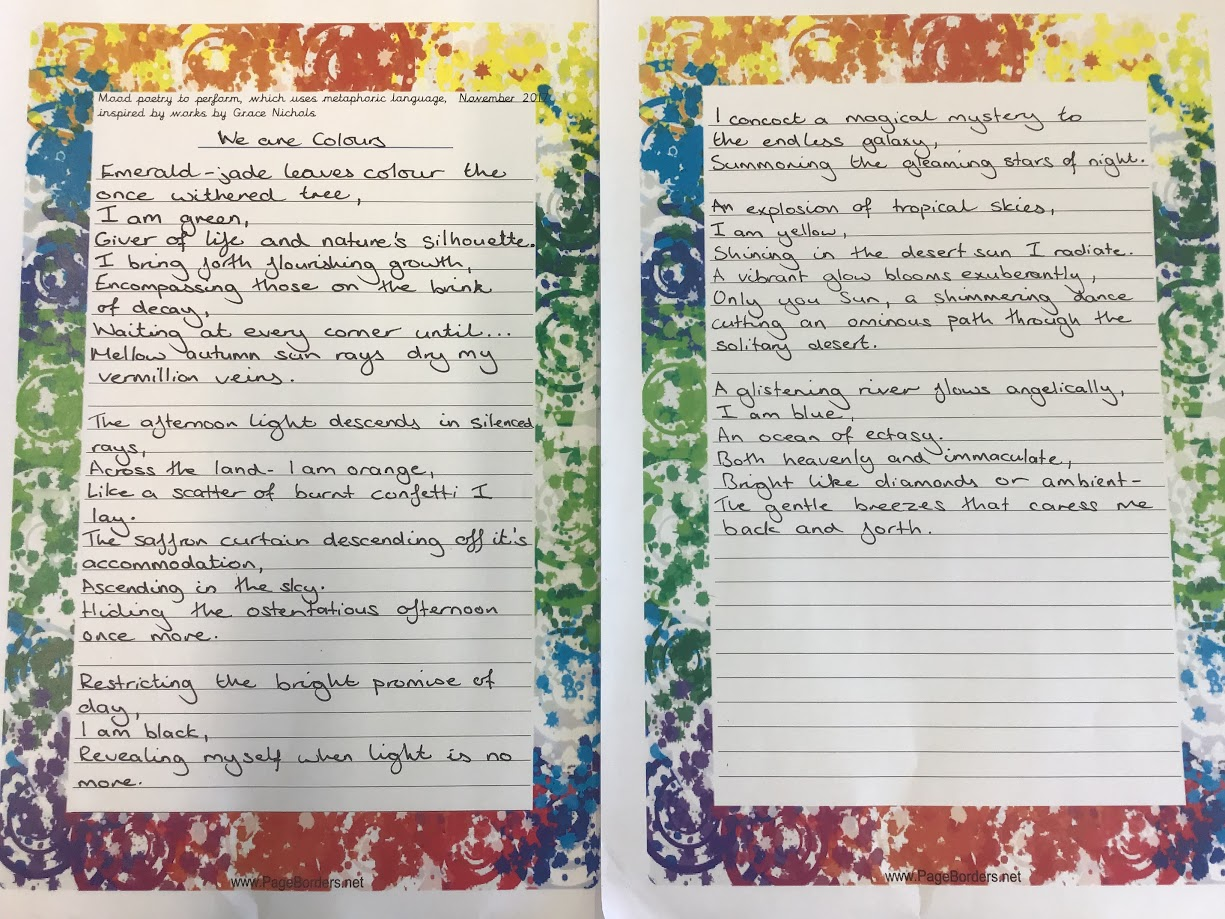 Mood poetry to perform, which uses metaphoric language, November
inspired by works by Grace Nichols
We are Colours
Emerald-jade leaves colour the
once withered tree,
I am green,
Giver of life and nature's silhouette.
I bring forth flourishing growth,
Encompassing those on the brink
of decay,
Waiting at every corner until...
Mellow autumn sun rays dry my
vermillion veins.
The afternoon light descends in silenced
rays,
Across the land- I am orange,
Like a scatter of burnt confetti I
lay.
The saffron curtain descending off it's
accommodation,
Ascending in the sky.
Hiding the ostentatious afternoon
once more.
Restricting the bright promise of
day,
I am black,
Revealing myself when light is no
more.
www.PageBorders.net
I concoct a magical mystery to
the endless galaxy,
Summoning the gleaming stars of night.
An explosion of tropical skies,
I am yellow,
Shining in the desert sun I radiate.
A vibrant glow blooms exuberantly,
Only you Sun, a shimmering dance
cutting an ominous path through the
solitary desert.
A glistening river flows angelically,
I am blue,
An ocean of ectasy.
Both heavenly and immaculate,
Bright like diamonds or ambient-
The gentle breezes that caress me
back and forth.
www.PageBorders.net